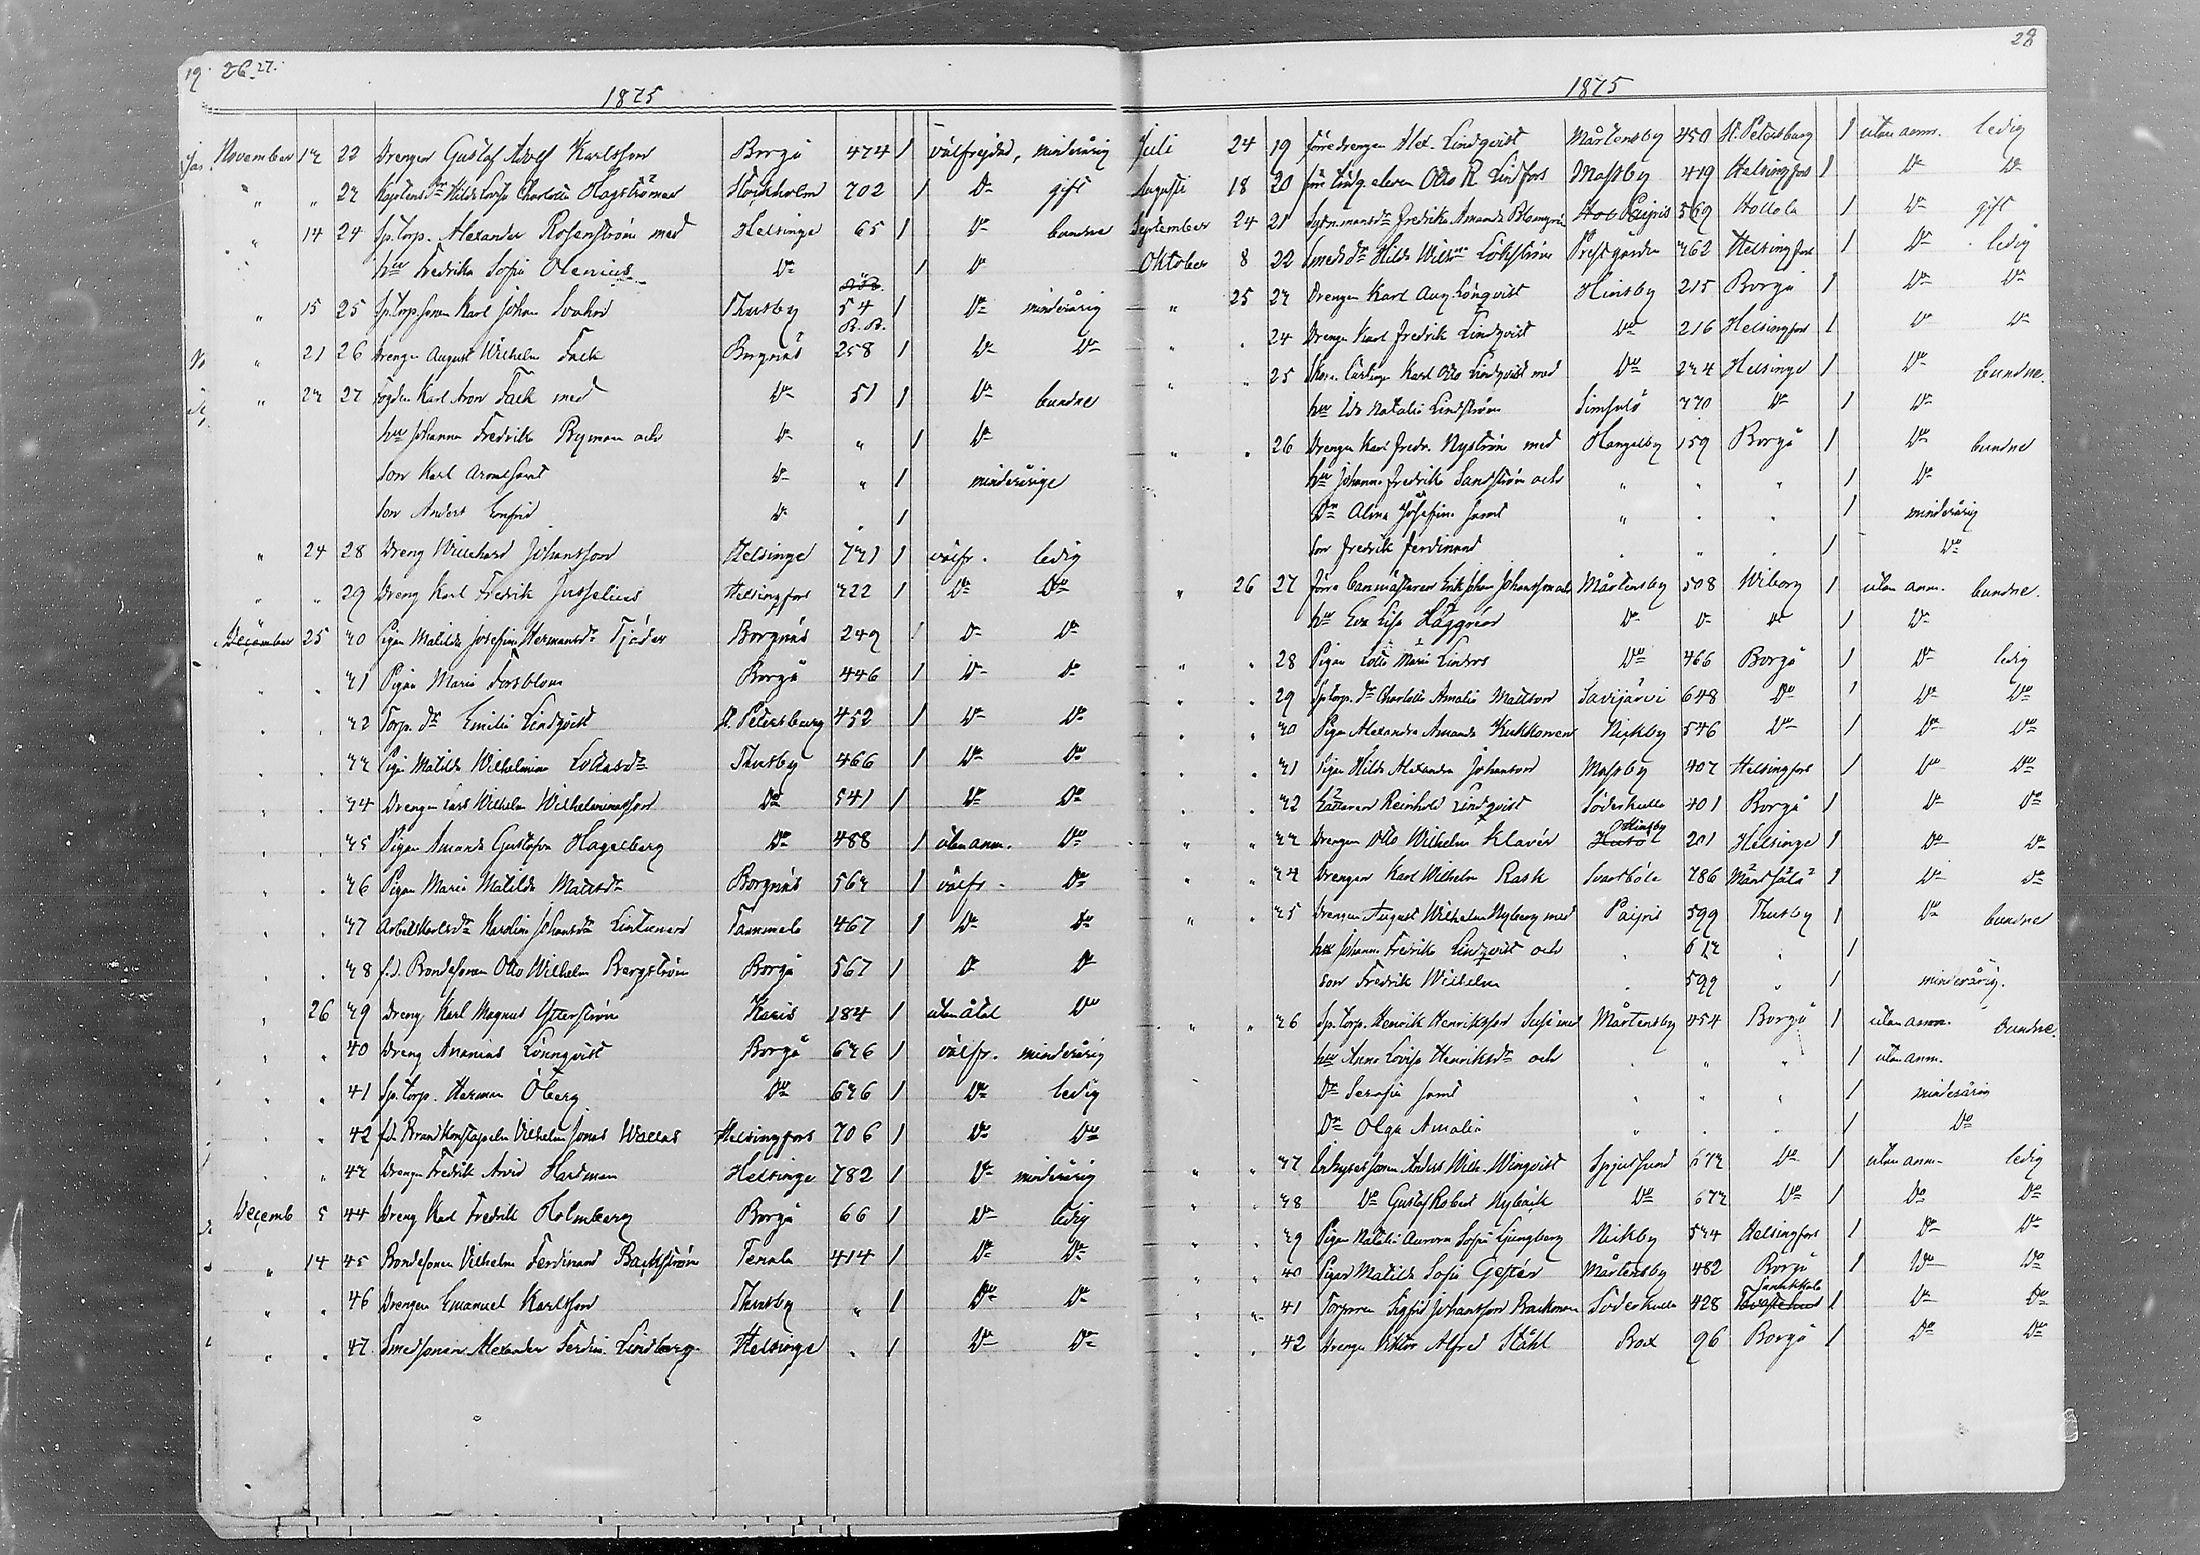 19. 26. 27.
1875
November 13 22 Drengen Gustaf Adolf Karlsson Borgå 474 1 välfrejdad, minderårig
" " 23 Kaptens dr Hilda Charlotta Hagströmer Stockholm 702 1 Do gift
" 14 24 Sp. Torp. Alexander Rosenström med Helsinge 65 1 Do bundne
hu Fredrika Sofia Olenius Do 1 Do
" 15 25 Sp. Torp. sonen Karl Johan Thusby 54 1 Do minderårig
R. R.
" 21 26 Drengen August Wilhelm Falk Borgnäs 258 1 Do Do
" 23 27 Fogden Karl Aron Falk med Do 51 1 Do bundne
hu Johanna Fredrika Ryman och Do " 1 Do
Son Karl Do " 1 minderårige
Son Anders Do " 1
" 24 28 Dreng Johansson Helsinge 731 1 välfr. ledig
" " 29 Dreng Karl Fredrik Juselius Helsingfors 322 1 Do Do
December 25 30 Pigan Matilda Josefina Hermansdr Tjäder Borgnäs 249 1 Do Do
" " 31 Pigan Maria Forsblom Borgå 446 1 Do Do
" " 32 Torp. dr Emilia Lindqvist St. Petersburg 452 1 Do Do
" " 33 Pigan Matilda Wilhelmina Thusby 466 1 Do Do
" " 34 Drengen Lars Wilhelm Wilhelmsson Do 541 1 Do Do
" " 35 Pigan Amanda Gustafva Hagelberg Do 488 1 utan anm. Do
" " 36 Pigan Maria Matilda Mattsdr Borgnäs 563 1 välfr. Do
" " 37 Arbetskarlsdr Karolina Johansdr Tammela 467 1 Do Do
" " 38 f.d. Bondesonen Otto Wilhelm Bergström Borgå 567 1 Do Do
" 26 39 Dreng Karl Magnus Ytterström Karis 184 1 utan åtal Do
" " 40 Dreng Ananias Lönnqvist Borgå 636 1 välfr. minderårig
" " 41 Sp. Torp. Herman Öberg Do 636 1 Do ledig
" " 42 f.d. Brandkonstapeln Vilhelm Jonas Wallas Helsingfors 706 1 Do Do
" " 43 Drengen Fredrik Arvid Hardman Helsinge 782 1 Do minderårig
Decemb 5 44 Dreng Karl Fredrik Holmberg Borgå 66 1 Do ledig
" 14 45 Bondesonen Vilhelm Ferdinand Backström Tenala 414 1 Do Do
" " 46 Drengen Emanuel Karlsson Thusby " 1 Do Do
" " 47 Smedsonen Alexander Ferdin. Lindberg Helsinge " 1 Do Do
28
1875
Juli 24 19 förre drengen Alex. Lindqvist Mårtensby 450 St. Petersburg 1 utan anm. ledig
Augusti 18 20 Otto R Lindfors Massby 419 Helsingfors 1 Do Do
September 24 21 Fredrika Amanda Blomqvist Paipis 569 Hollola 1 Do gift
Oktober 8 22 Smeds dr Hilda Wilhna Löfström Prestgården 362 Helsingfors 1 Do ledig
" 25 23 Drengen Karl Aug. Lönqvist Hinsby 215 Borgå 1 Do Do
" " 24 Drengen Karl Fredrik Lindqvist Do 216 Helsingfors 1 Do Do
" " 25 Karl Otto Lindqvist med Do 234 Helsinge 1 Do bundne.
hu Ida Natalia Lindström Simsalö 330 Do 1 Do
" " 26 Drengen Karl Fredr. Nyström med Hangelby 159 Borgå 1 Do bundne
hu Johanna Fredrika Sandström och " " " 1 Do
Dr Alma Josefina samt " " " 1 minderårig
Son Fredrik Ferdinand " " " 1 Do
" 26 27 förre banmästaren Erik Johan Johansson och Mårtensby 508 Wiborg 1 utan anm. bundne.
hu Eva Lisa Häggrén Do Do Do 1 Do
" " 28 Pigan Maria Linders Do 466 Borgå 1 Do ledig
" " 29 Sp. torp. dr Charlotta Amalia Mattson Savijärvi 648 Do 1 Do Do
" " 30 Pigan Alexandra Amanda Kukkonen Nickby 546 Do 1 Do Do
" " 31 Pigan Hilda Alexandra Johanson Massby 403 Helsingfors 1 Do Do
" " 32 Reinhold Lindqvist Söderkulla 401 Borgå 1 Do Do
" " 33 Drengen Otto Wilhelm Klavér Hinsby 201 Helsinge 1 Do Do
" " 34 Drengen Karl Wilhelm Rask Svartböle 386 Mäntsälä 1 Do Do
" " 35 Drengen August Wilhelm Nyberg med Paipis 599 Thusby 1 Do bundne
hu Johanna Fredrika Lindqvist och " 613 " 1
son Fredrik Wilhelm " 599 " 1 minderårig.
" " 36 Sp. torp. Henrik Henriksson med Mårtensby 454 Borgå 1 utan anm. bundne.
hu Anna Lovisa Henriksdr och " " " 1 utan anm.
Dr Serafia samt " " " 1 minderårig
Dr Olga Amalia " " " 1 Do
" " 37 Anders Wilh. Winqvist Spjutsund 673 Do 1 utan anm. ledig
" " 38 Do Gustaf Robert Nybäck Do 673 Do 1 Do Do
" " 39 Pigan Natalia Aurora Sofia Ljungberg Nickby 534 Helsingfors 1 Do Do
" " 40 Pigan Matilda Sofia Gestér Mårtensby 482 Borgå 1 Do Do
" " 41 Torparen Sigfrid Johansson Söderkulla 428 Janakkala Tavastehus 1 Do Do
" " 42 Drengen Viktor Alfred Ståhl Box 96 Borgå 1 Do Do